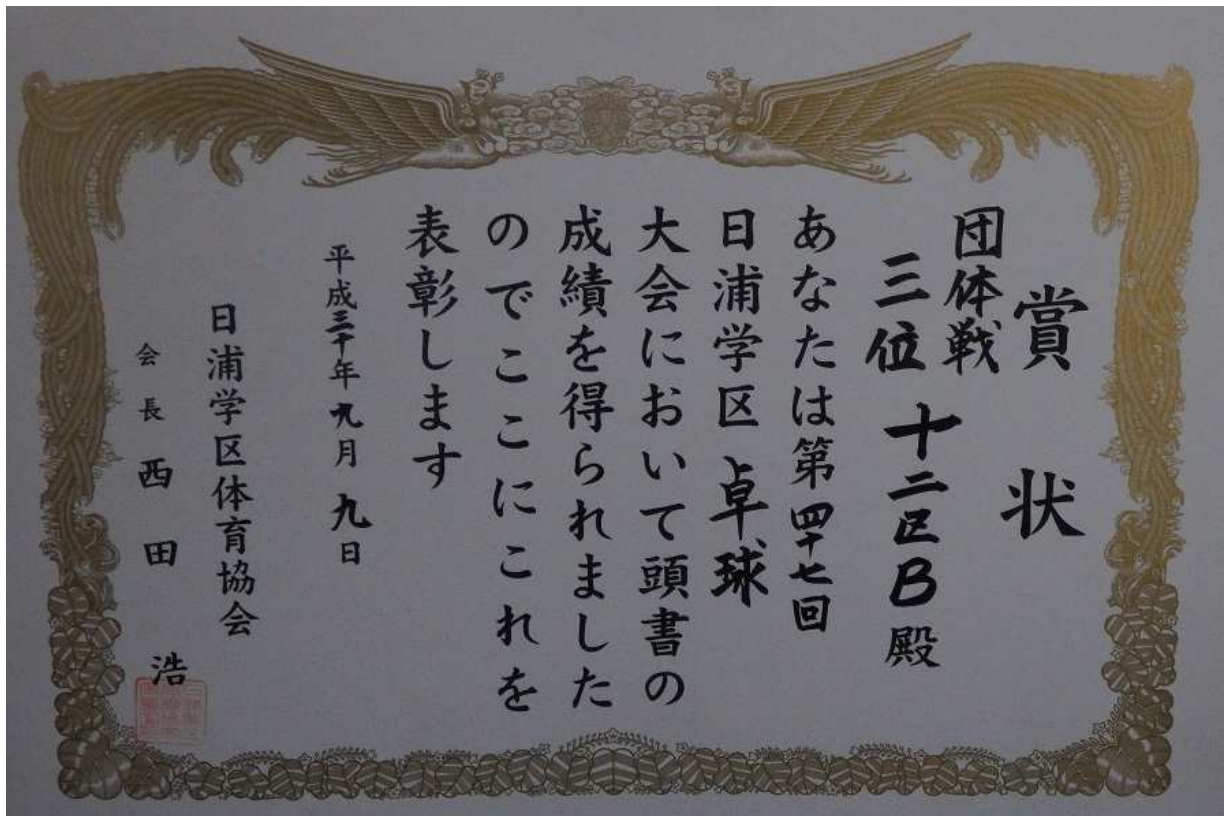 賞状
団体戦
三位 十二区B殿
あなたは第四十七回
日浦学区 卓球
大会において頭書の
成績を得られました
のでここにこれを
表彰します
平成三十年九月九日
日浦学区体育協会
会長 西田 浩